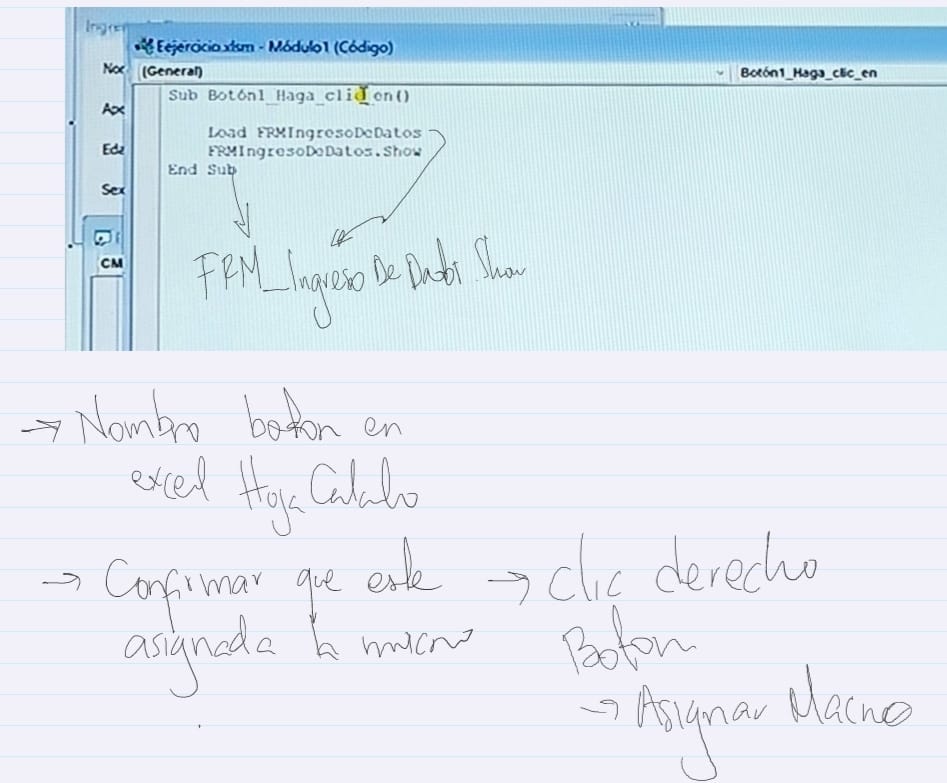 Ingre
Eejercicio.xlsm - Módulo1 (Código)
(General) Botón1_Haga_clic_en
Sub Botón1_Haga_clic en()
Load FRMIngresoDeDatos
FRMIngresoDeDatos.Show
End Sub
Nor
Ape
Eda
Sex
CM
FRM_Ingreso De . Show
→ Nombre boton en
excel Hoja Calculo
→ Confirmar que este
asignada la macro
→ Clic derecho
Boton
→ Asignar Macro